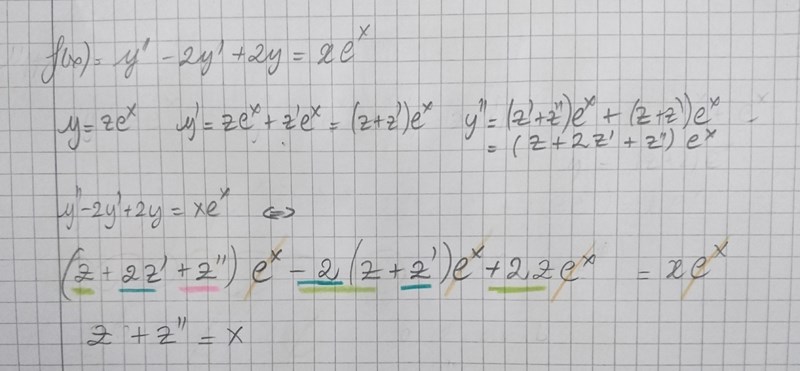 f(x) = y' - 2y' + 2y = xe^x
y = ze^x y' = ze^x + z'e^x = (z+z')e^x y'' = (z'+z'')e^x + (z+z')e^x
= (z + 2z' + z'') e^x
y'' - 2y' + 2y = xe^x ⇔
(z + 2z' + z'') e^x - 2 (z + z')e^x + 2ze^x = xe^x
z + z'' = x